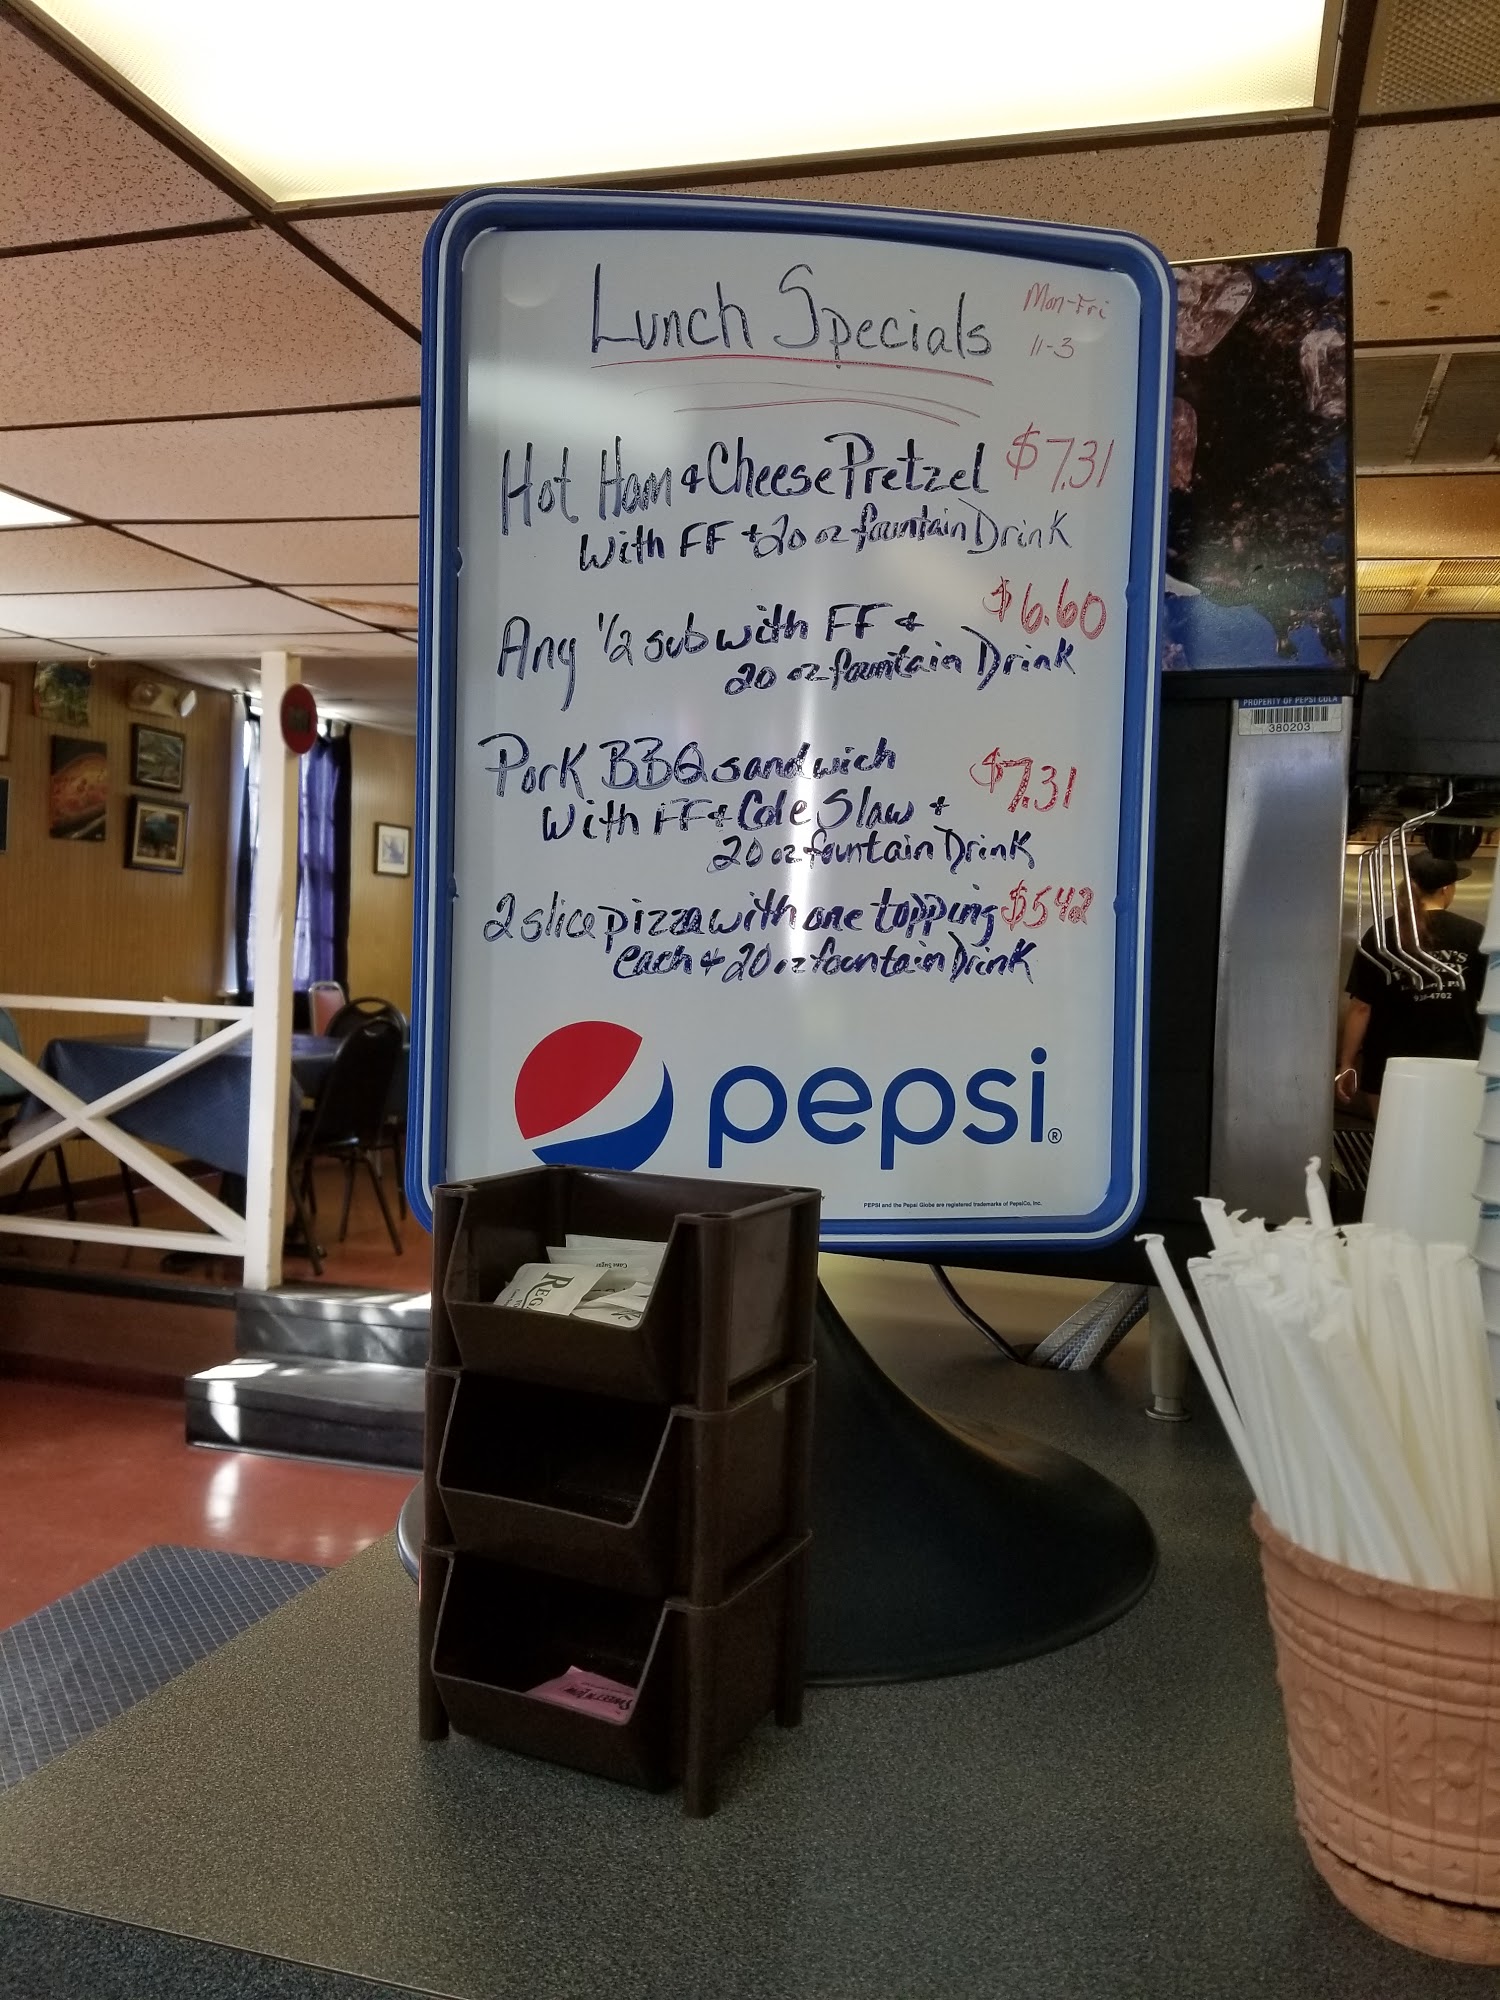 Lunch Specials
Mon-Fri
11-3
Hot Ham & Cheese Pretzel $7.31
with FF + 20 oz fountain Drink
Any 1/2 sub with FF & $6.60
20 oz fountain Drink
Pork BBQ sandwich $7.31
with FF & Cole Slaw +
20 oz fountain Drink
2 slice pizza with one topping $5.42
each & 20 oz fountain Drink
pepsi®
PEPSI and the Pepsi Globe are registered trademarks of PepsiCo, Inc.
PROPERTY OF PEPSI COLA
380203
Cane Sugar
SWEET'N LOW